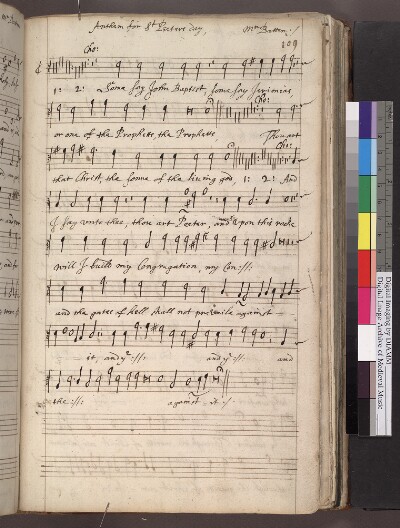 Anthem for St Peeters day, Mr Batten :/
109
Cho:
1: 2: Some say John Baptist, some say Jeremias,
Cho:
or one of the Prophetts, the Prophetts Thou art
Cho:
that Christ, the sonne of the living god, 1: 2: And
I say unto thee, thou art Peeter, and upon this rocke
will I built my Congregation, my Con://:
and the gates of hell shall not prevaile against
it, and ye ://: and ye ://: and
the ://: against it :/
Digital Imaging by DIAMM
Digital Image Archive of Medieval Music